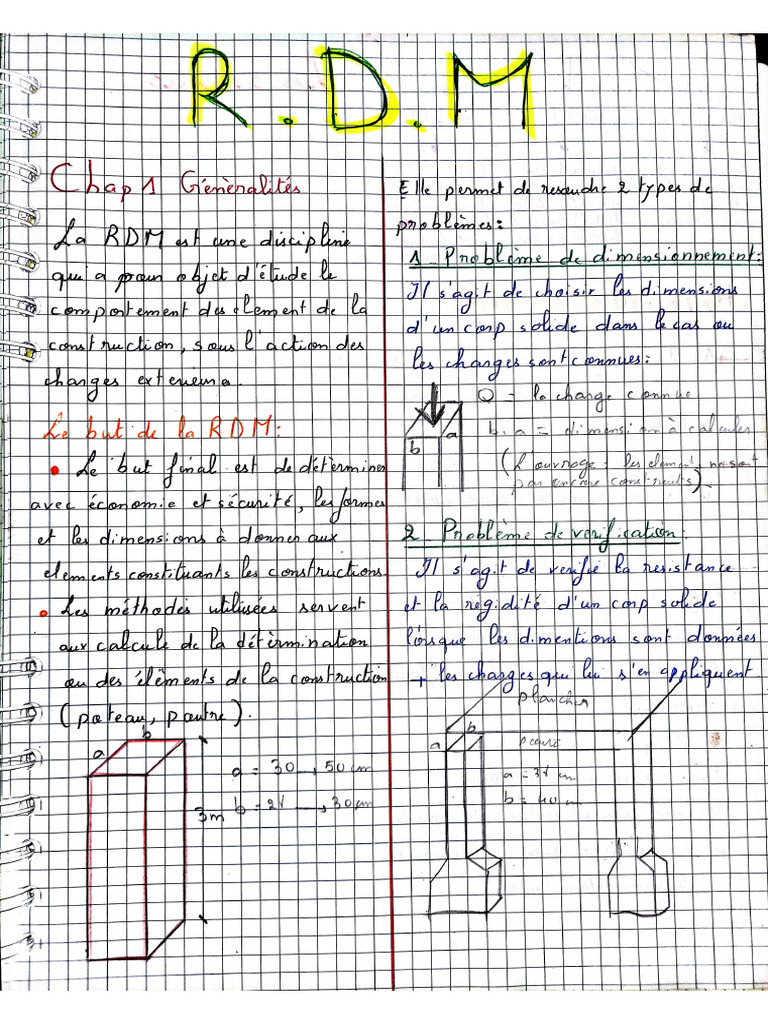 R.D.M
Chap 1 Génèralités
La RDM est une discipline
qui a pour objet d'étude le
comportement des element de la
construction, sous l'action des
charges exterieure.
Le but de la RDM:
• Le but final est de détermines
avec économie et sécurité, les formes
et les dimensions à donner aux
elements constituants les constructions
• Les méthodes utilisées servent
aux calcule de la détermination
ou des élèments de la construction
(poteau, poutre).
b
a
a = 30 → 50 cm
3m b = 21 → 30 cm
Elle permet de resoudre 2 types de
problèmes:
1_ Problème de dimensionnement:
Il s'agit de choisir les dimensions
d'un corp solide dans le cas ou
les charges sont connues:
Q = la charge connue
a
b
b, a = dimension à calculer
(L'ouvrage = les element ne sont
pas encore construits).
2_ Problème de verification:
Il s'agit de verifié la resistance
et la regidité d'un corp solide
lorsque les dimentions sont données
+ les charges qui lui s'en appliquent
plancher
b
a
a = 31 cm
b = 40 cm